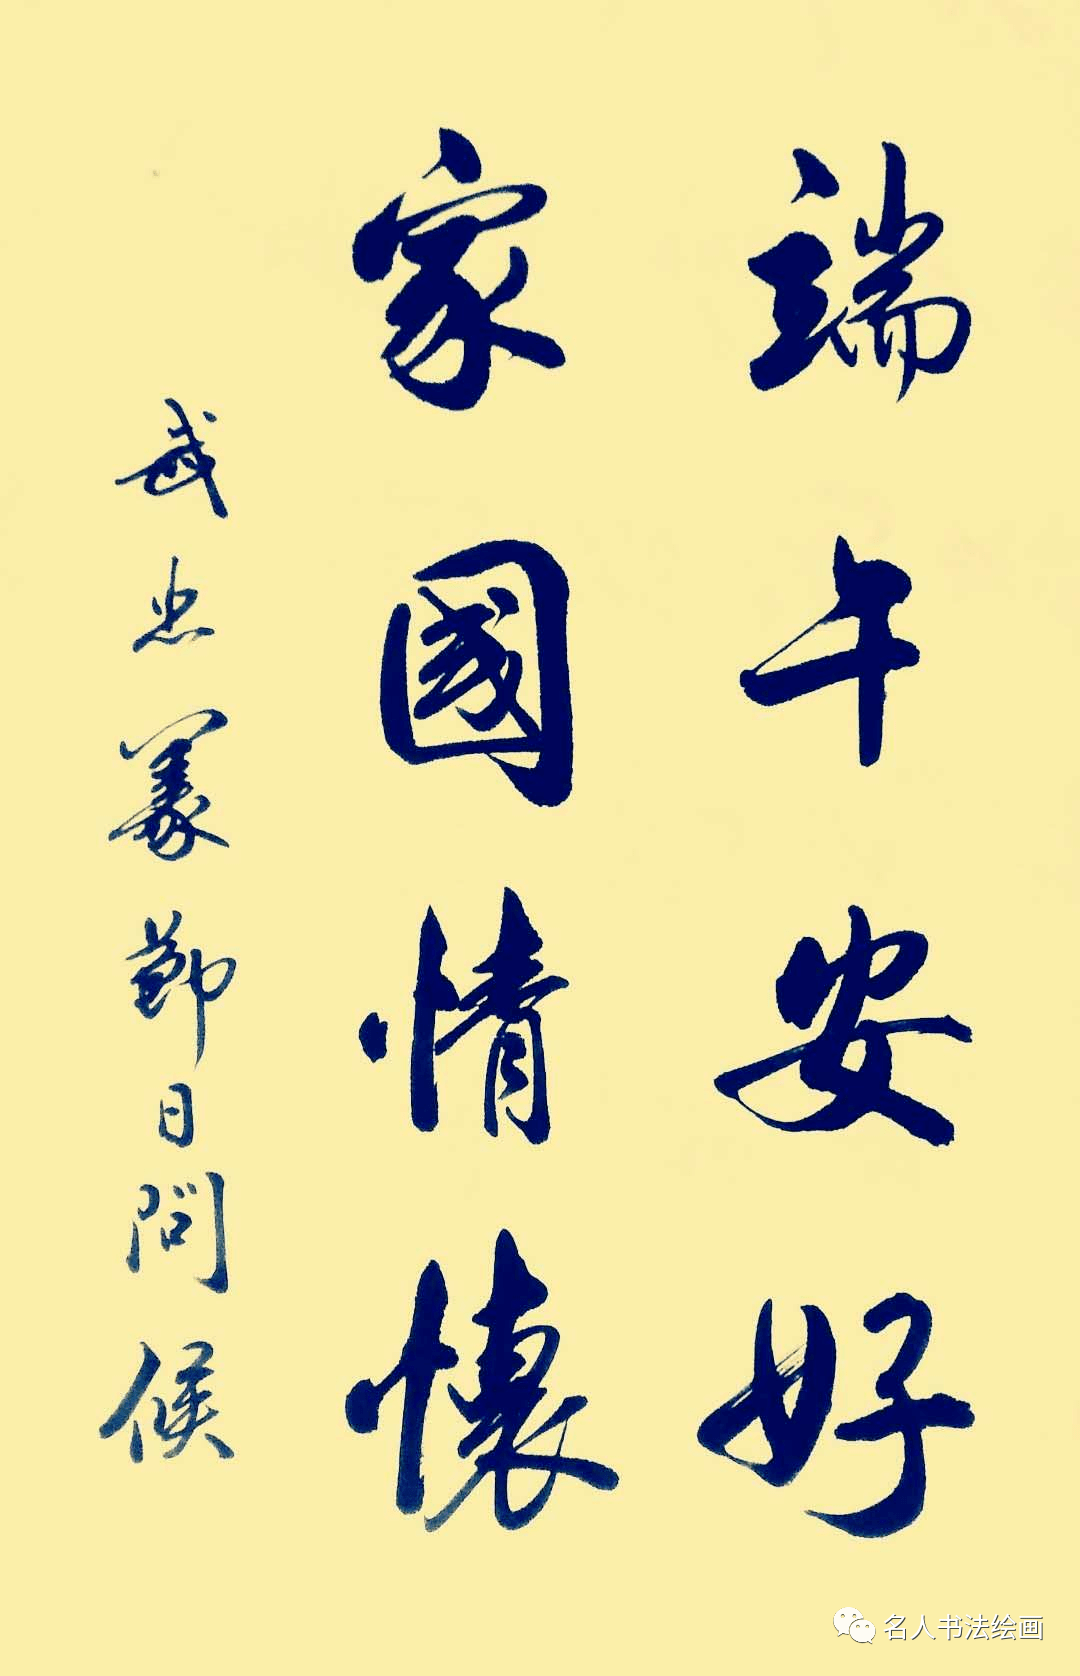 端午安好
家國情懷
忠義節日問候
名人书法绘画